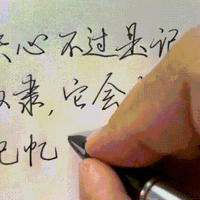 心不过是记
它会
记忆